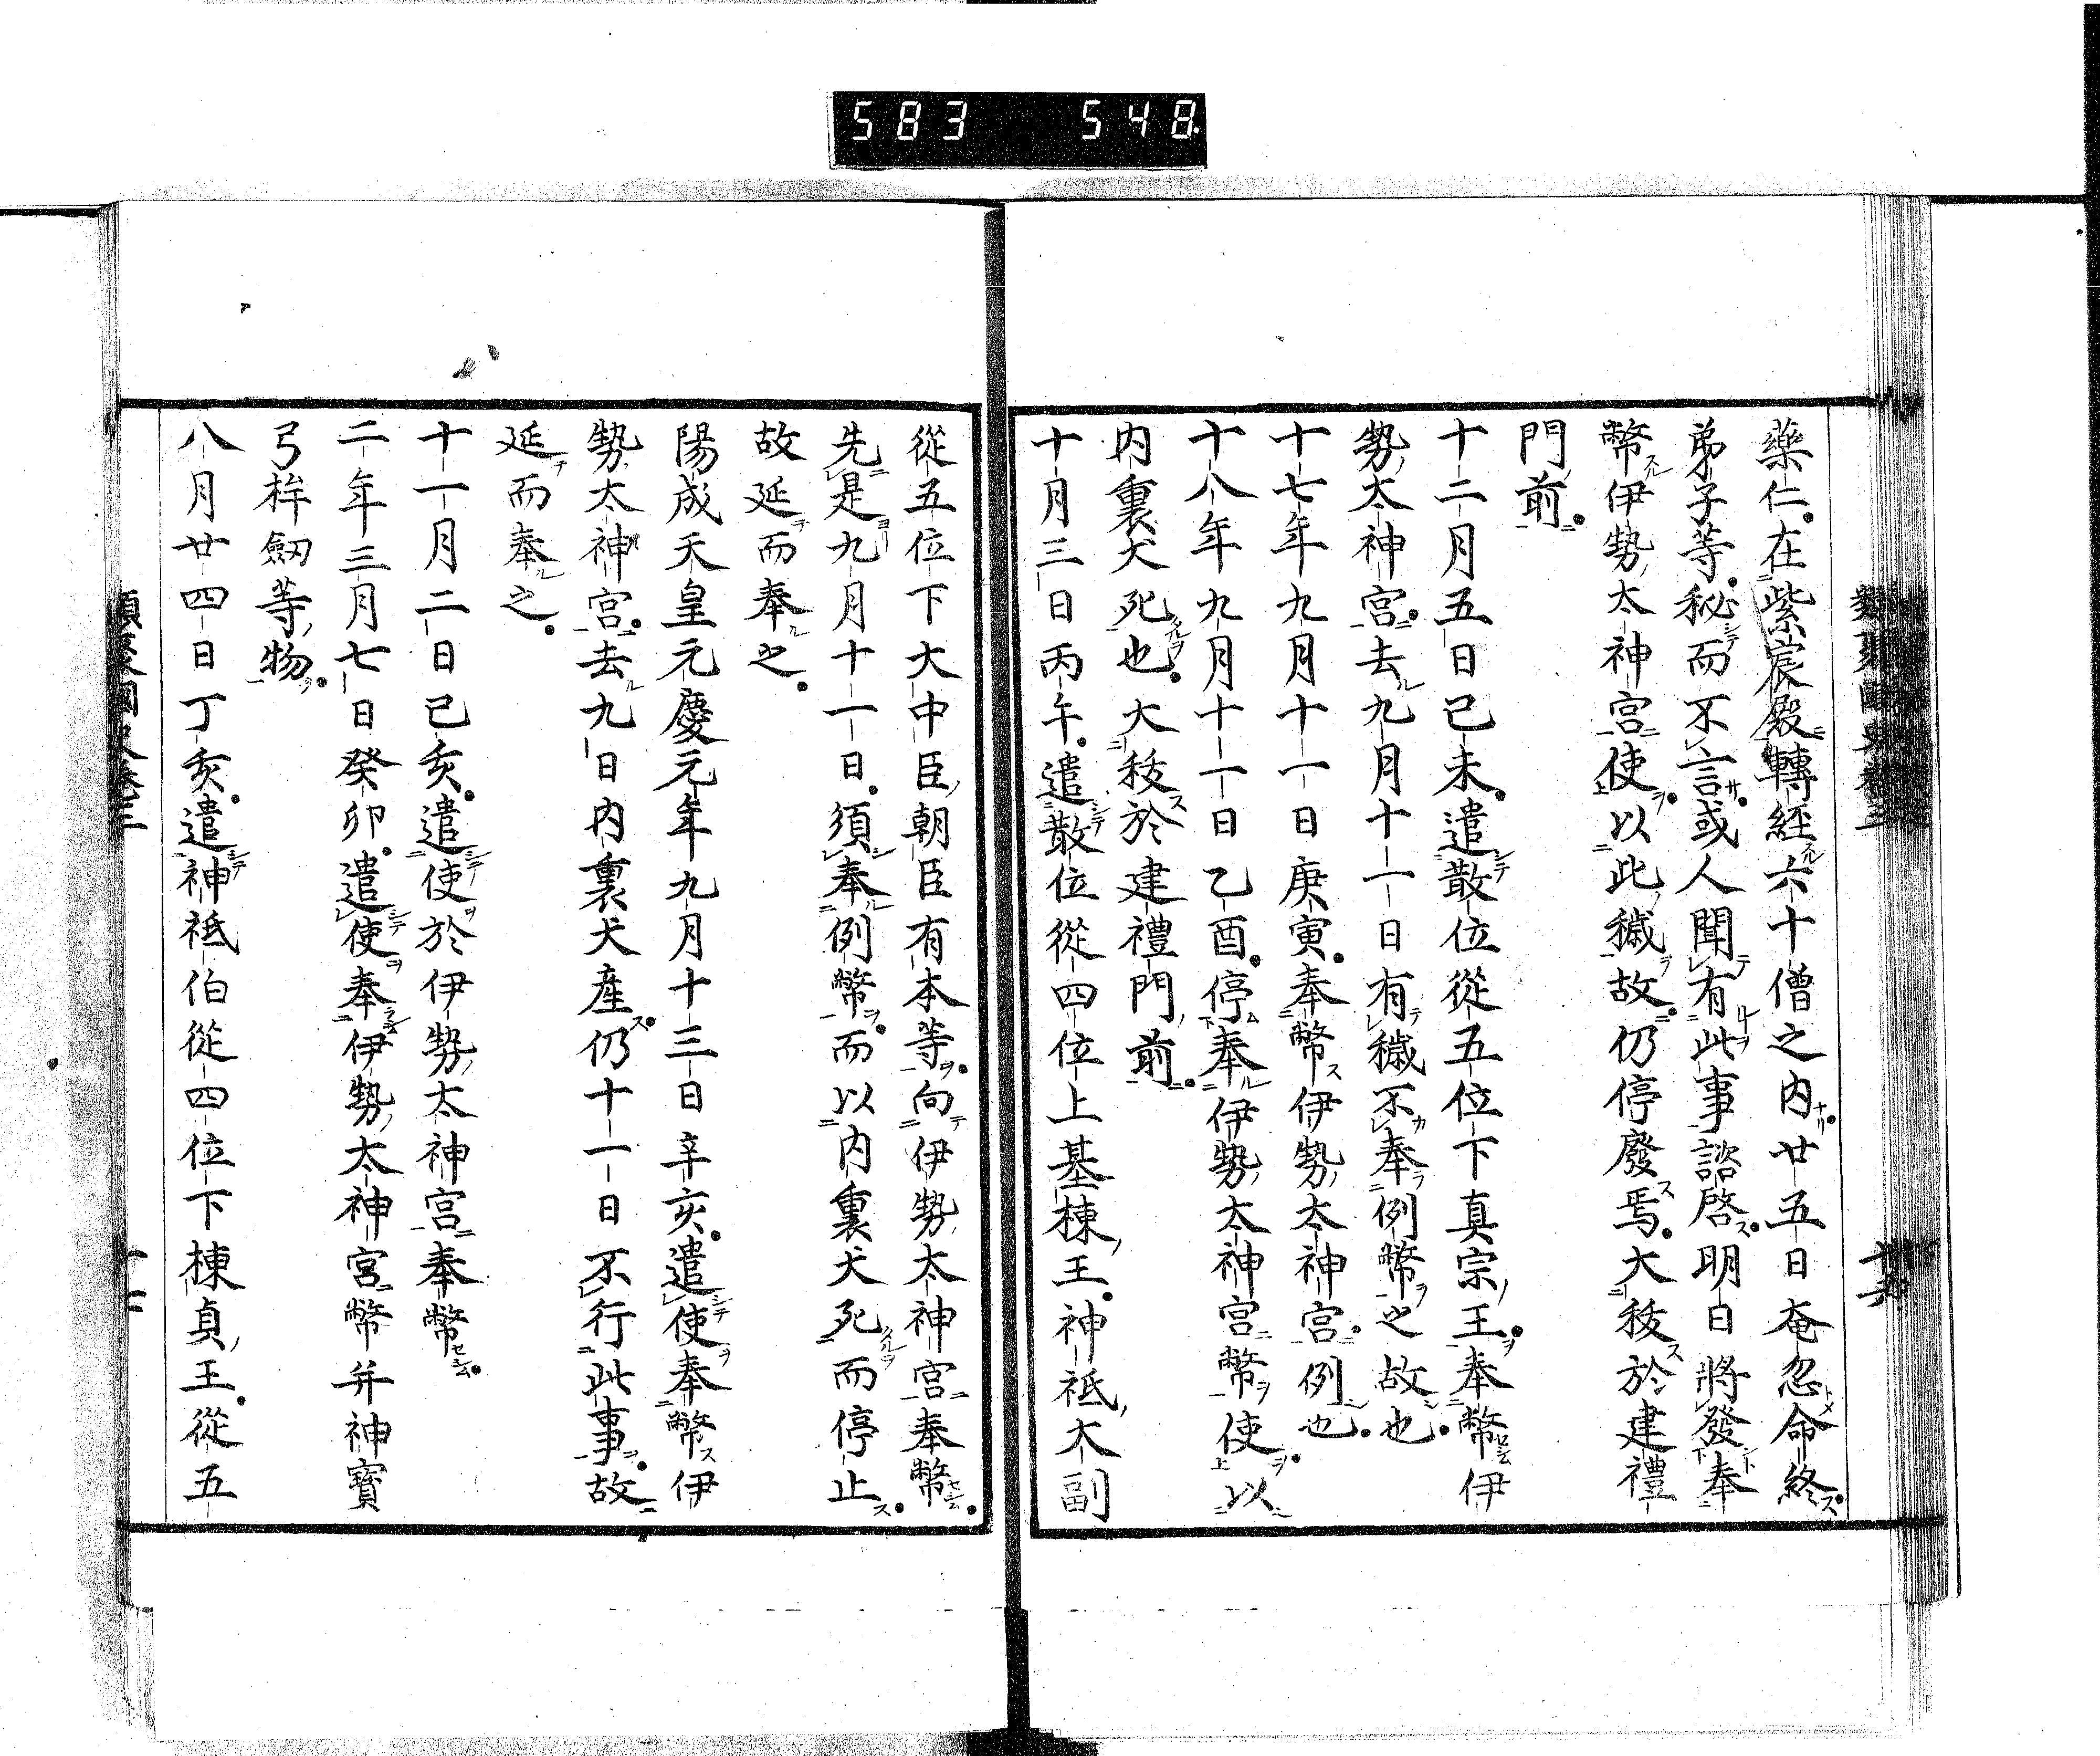 583 548
藥仁在紫宸殿轉經六十僧之内廿五日奄忽命終
弟子等秘而不言或人聞有此事諮啓明日將發奉
幣伊勢太神宮使以此穢故仍停廢焉大秡於建禮
門前
十二月五日己未遣散位從五位下真宗王奉幣伊
勢太神宮去九月十一日有穢不奉例幣之故也
十七年九月十一日庚寅奉幣伊勢太神宮例也
十八年九月十一日乙酉停奉伊勢太神宮幣使以
内裏犬死也大秡於建禮門前
十月三日丙午遣散位從四位上基棟王神祇大副
從五位下大中臣朝臣有本等向伊勢太神宮奉幣
先是九月十一日須奉例幣而以内裏犬死而停止
故延而奉之
陽成天皇元慶元年九月十三日辛亥遣使奉幣伊
勢太神宮去九日内裏犬產仍十一日不行此事故
延而奉之
十一月二日己亥遣使於伊勢太神宮奉幣
二年三月七日癸卯遣使奉伊勢太神宮幣并神寶
弓桙劔等物
八月廿四日丁亥遣神祇伯從四位下棟貞王從五
類聚國史卷三